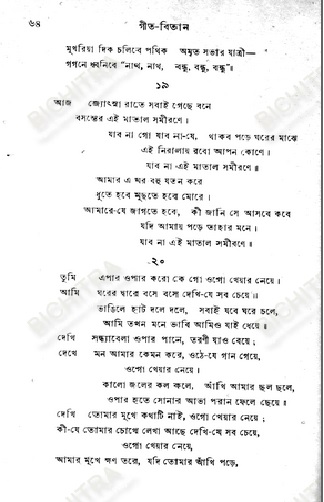 ৬৪
গীত-বিতান
মুখরিয়া দিক চলিবে পথিক অমৃত সভার যাত্রী—
গগনে ধ্বনিবে "নাথ, নাথ, বন্ধু, বন্ধু, বন্ধু"॥
১৯
আজ জ্যোৎস্না রাতে সবাই গেছে বনে
বসন্তের এই মাতাল সমীরণে॥
যাব না গো যাব না-যে, থাকব পড়ে ঘরের মাঝে
এই নিরালায় রবো আপন কোণে।
যাব না এই মাতাল সমীরণে॥
আমার এ ঘর বহু যতন করে
ধুতে হবে মুছতে হবে মোরে।
আমারে-যে জাগতে হবে, কী জানি সে আসবে কবে
যদি আমায় পড়ে তাহার মনে।
যাব না এই মাতাল সমীরণে॥
২০
তুমি এপার ওপার করো কে গো ওগো খেয়ার নেয়ে।
আমি ঘরের দ্বারে বসে বসে দেখি-যে সব চেয়ে॥
ভাঙিলে হাট দলে দলে, সবাই যবে ঘরে চলে,
আমি তখন মনে ভাবি আমিও যাই ধেয়ে॥
দেখি সন্ধ্যাবেলা ওপার পানে, তরণী যাও বেয়ে;
দেখে মন আমার কেমন করে, ওঠে-যে গান গেয়ে,
ওগো খেয়ার নেয়ে।
কালো জলের কল কলে, আঁখি আমার ছল ছলে,
ওপার হতে সোনার আভা পরান ফেলে ছেয়ে।
দেখি তোমার মুখে কথাটি নাই, ওগো খেয়ার নেয়ে;
কী-যে তোমার চোখে লেখা আছে দেখি-যে সব চেয়ে,
ওগো খেয়ার নেয়ে,
আমার মুখে ক্ষণ তরে, যদি তোমার আঁখি পড়ে,
BICHITRA